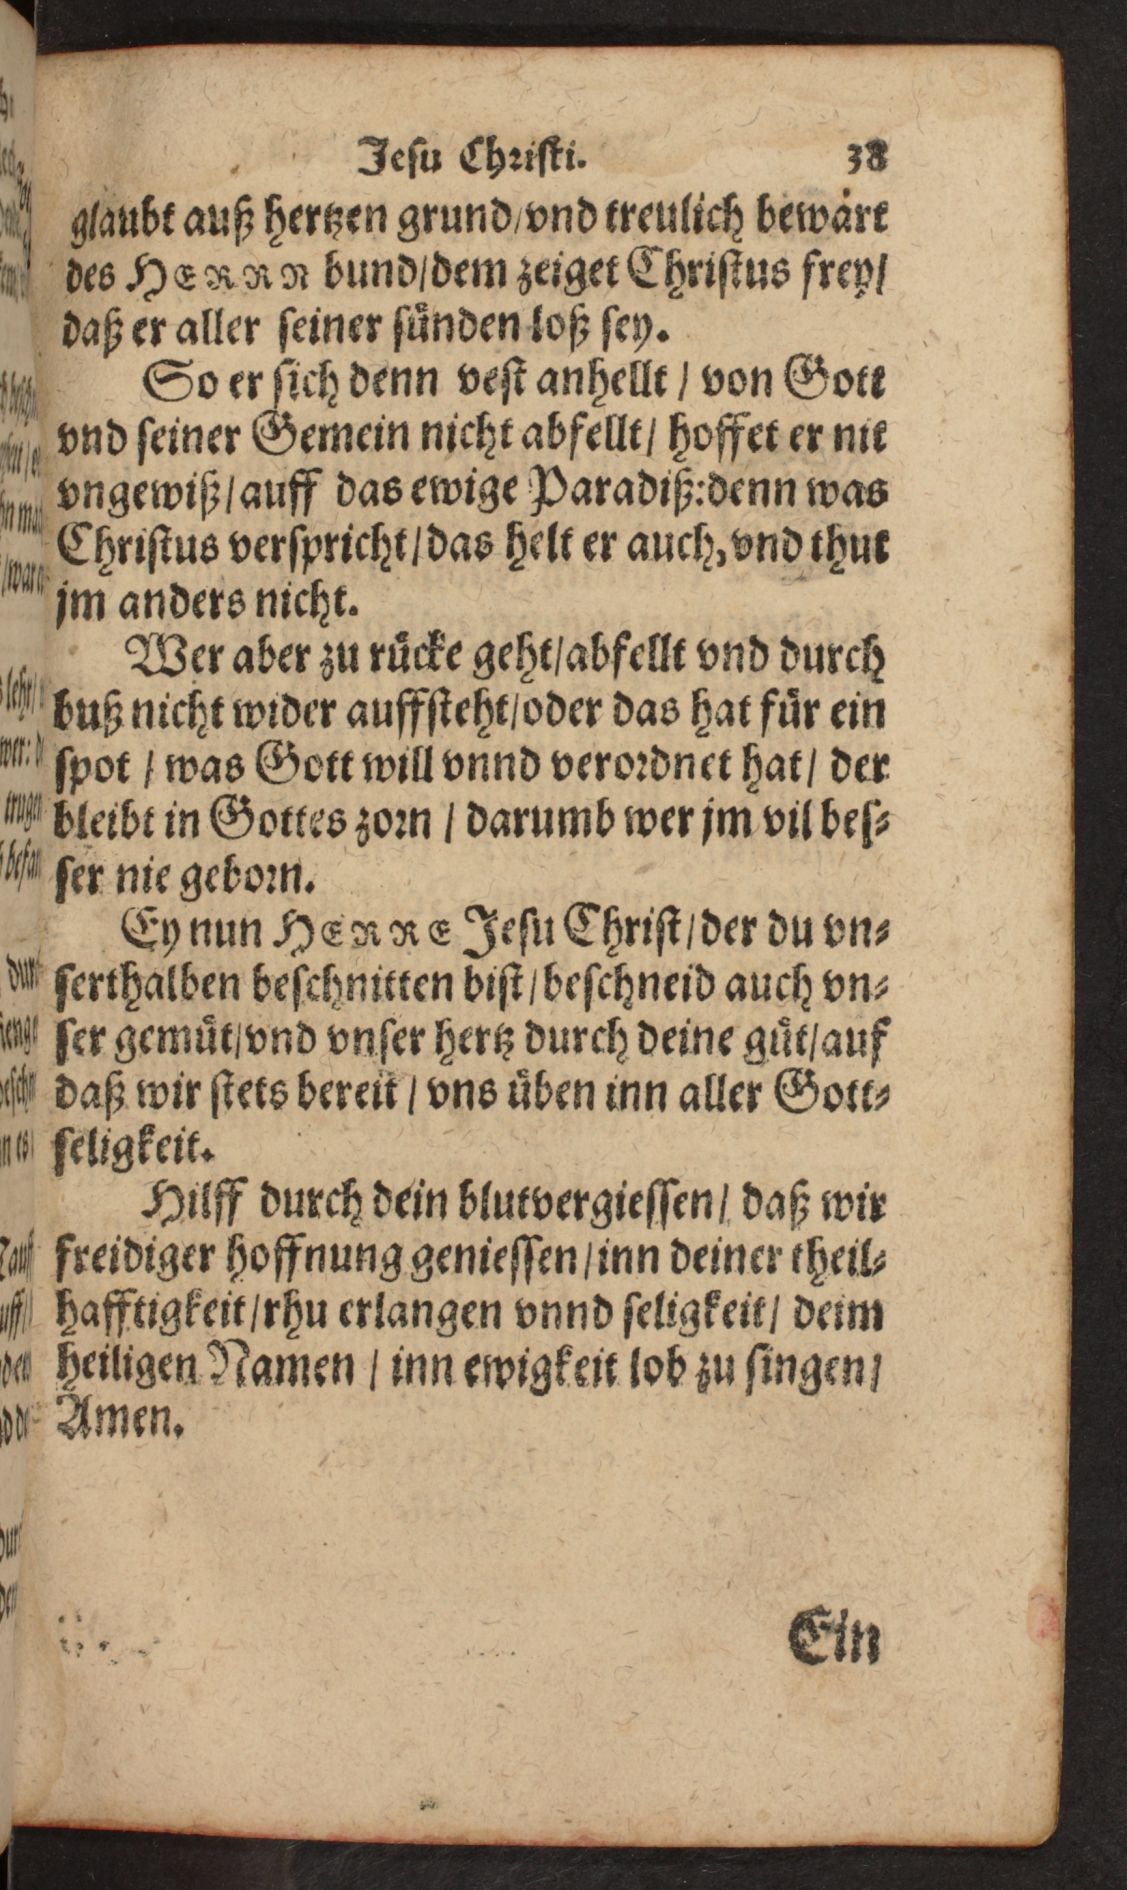 Jesu Christi. 38
glaubt auß hertzen grund/vnd treulich bewärt
des HERRN bund/dem zeiget Christus frey/
daß er aller seiner sünden loß sey.
So er sich denn vest anhellt / von Gott
vnd seiner Gemein nicht abfellt/ hoffet er nit
vngewiß/auff das ewige Paradiß:denn was
Christus verspricht/das helt er auch, vnd thut
jm anders nicht.
Wer aber zu rücke geht/abfellt vnd durch
buß nicht wider auffsteht/oder das hat für ein
spot / was Gott will vnnd verordnet hat/ der
bleibt in Gottes zorn / darumb wer jm vil bes-
ser nie geborn.
Ey nun HERRE Jesu Christ/der du vn-
serthalben beschnitten bist/beschneid auch vn-
ser gemüt/vnd vnser hertz durch deine güt/auf
daß wir stets bereit / vns üben inn aller Gott-
seligkeit.
Hilff durch dein blutvergiessen/ daß wir
freidiger hoffnung geniessen/inn deiner theil-
hafftigkeit/rhu erlangen vnnd seligkeit/ deim
heiligen Namen / inn ewigkeit lob zu singen/
Amen.
Ein